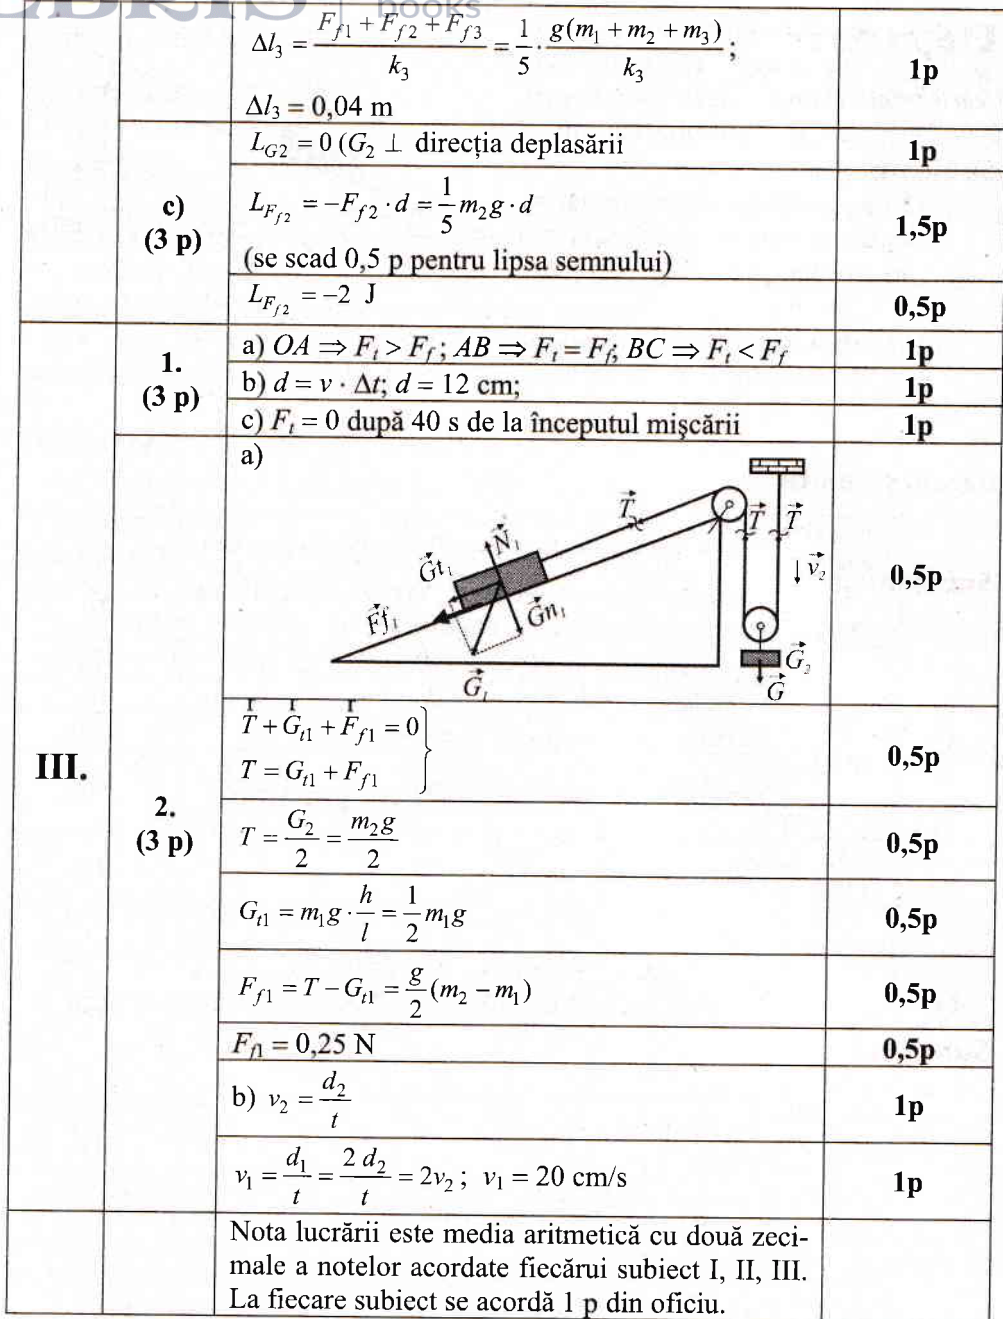 books
Δl₃ = (F_f1 + F_f2 + F_f3)/k₃ = 1/5 · g(m₁ + m₂ + m₃)/k₃ ;
Δl₃ = 0,04 m
1p
L_G2 = 0 (G₂ ⊥ direcția deplasării
1p
c)
(3 p)
L_Ff2 = −F_f2 · d = 1/5 m₂g · d
(se scad 0,5 p pentru lipsa semnului)
1,5p
L_Ff2 = −2 J
0,5p
III.
1.
(3 p)
a) OA ⇒ F_t > F_f ; AB ⇒ F_t = F_f; BC ⇒ F_t < F_f
1p
b) d = v · Δt; d = 12 cm;
1p
c) F_t = 0 după 40 s de la începutul mişcării
1p
2.
(3 p)
a)
T⃗
N⃗₁
G⃗t₁
F⃗f₁
G⃗n₁
G⃗₁
T⃗ T⃗
v⃗₂
G⃗₂
G⃗
0,5p
T + G_t1 + F_f1 = 0
T = G_t1 + F_f1
0,5p
T = G₂/2 = m₂g/2
0,5p
G_t1 = m₁g · h/l = 1/2 m₁g
0,5p
F_f1 = T − G_t1 = g/2 (m₂ − m₁)
0,5p
F_f1 = 0,25 N
0,5p
b) v₂ = d₂/t
1p
v₁ = d₁/t = 2 d₂/t = 2v₂ ; v₁ = 20 cm/s
1p
Nota lucrării este media aritmetică cu două zeci-
male a notelor acordate fiecărui subiect I, II, III.
La fiecare subiect se acordă 1 p din oficiu.